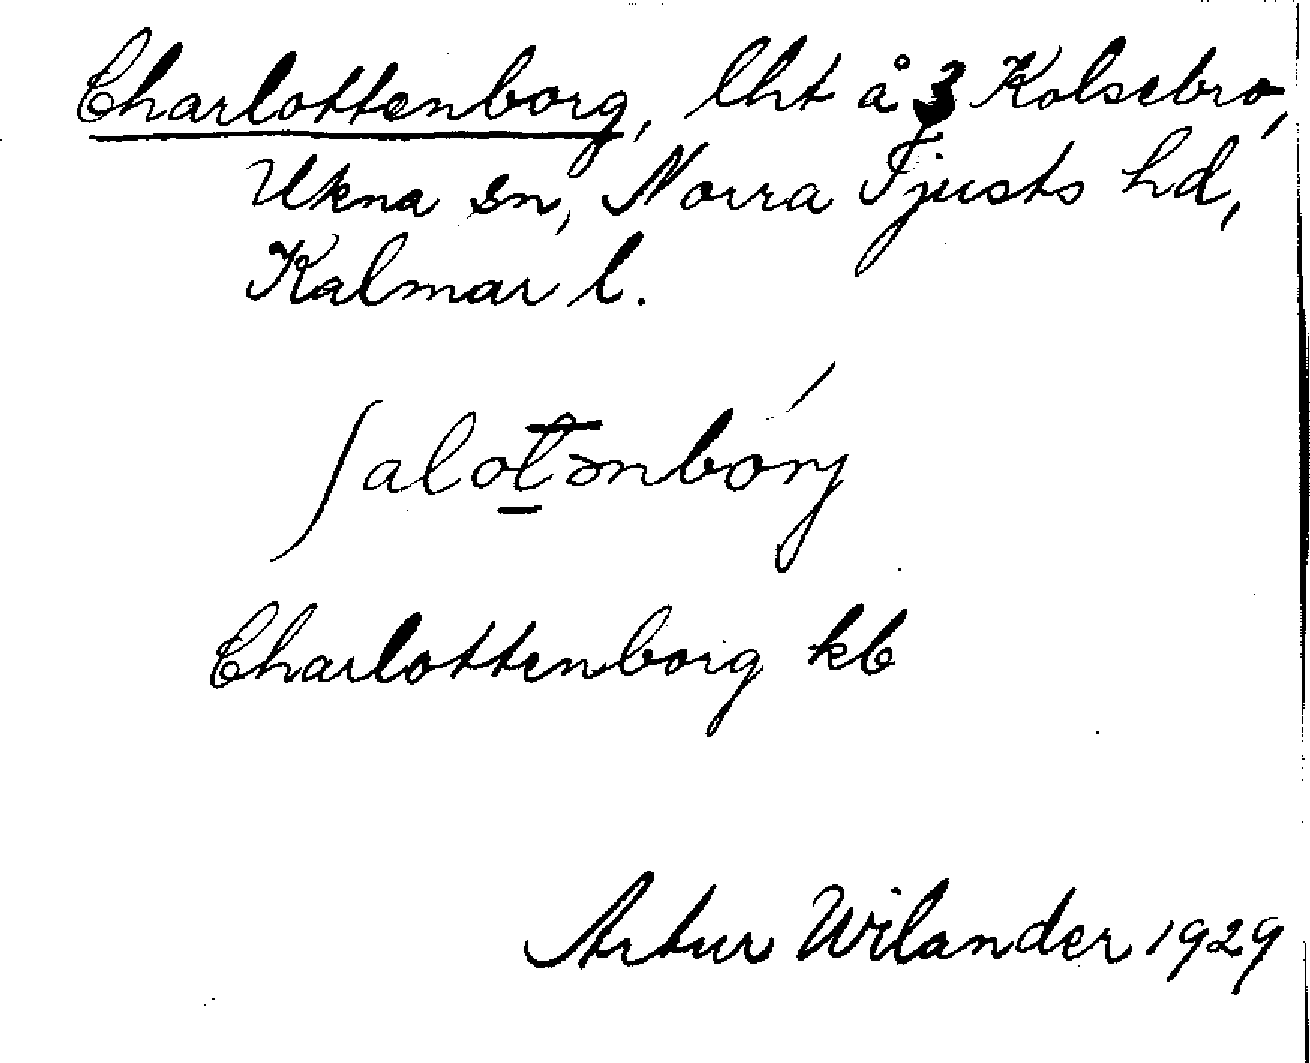 Charlottenborg, lht å 3 Kolsebro,
Ukna sn, Norra Tjusts hd,
Kalmar l.
ʃalot̲̅ənbórj
Charlottenborg kb
Artur Wilander 1929